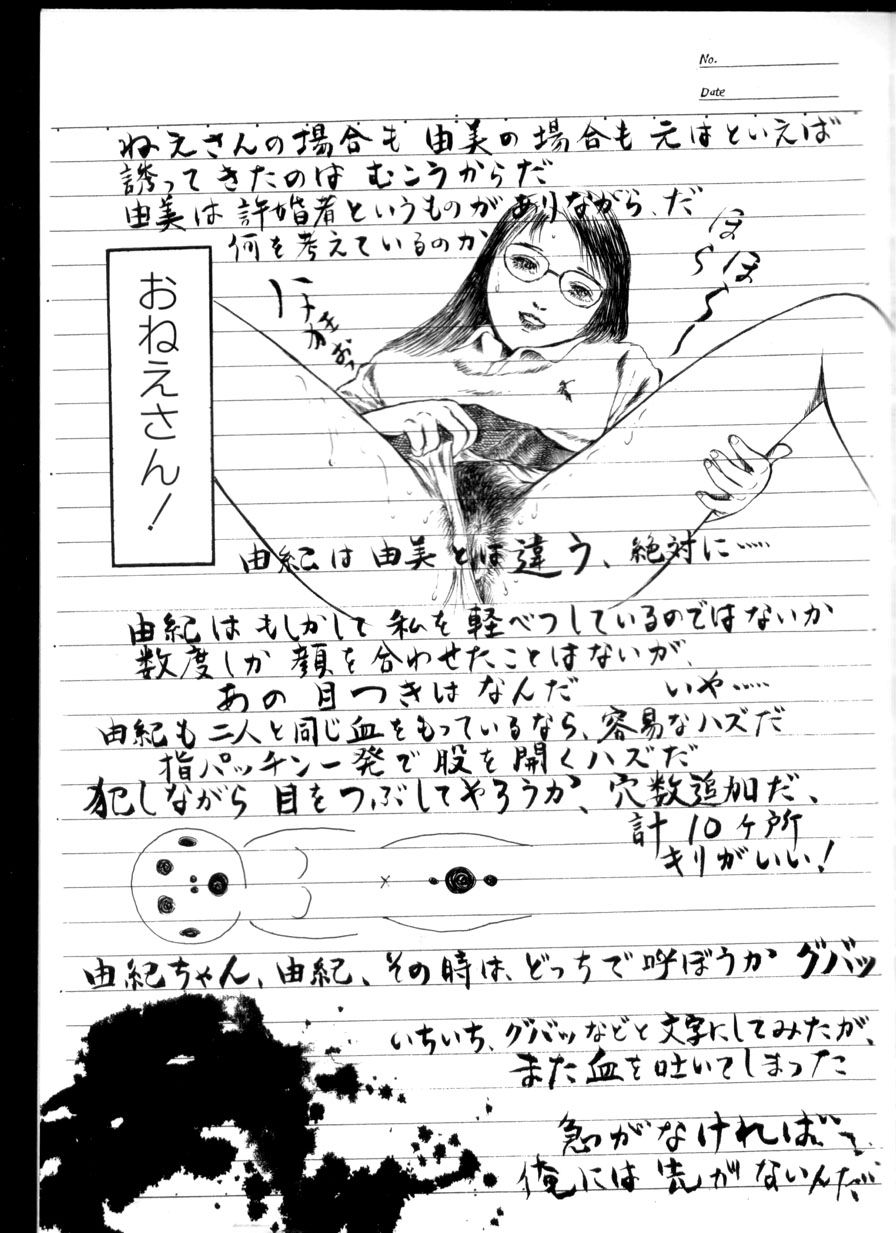 No.
Date
ねえさんの場合も 由美の場合も 元はといえば
誘ってきたのは むこうからだ
由美は許婚者というものがありながら、だ
何を考えているのか
ほ〜ほ〜
おねえさん!
由紀は由美とは違う、絶対に……
由紀はもしかして私を軽べつしているのではないか
数度しか顔を合わせたことはないが、
あの目つきはなんだ いや……
由紀も二人と同じ血をもっているなら、容易なハズだ
指パッチン一発で股を開くハズだ
犯しながら目をつぶしてやろうか、穴数追加だ、
計10ヶ所
キリがいい!
由紀ちゃん、由紀、その時は、どっちで呼ぼうか グバッ
いちいち、グバッなどと文字にしてみたが、
また血を吐いてしまった
急がなければ…
俺には先がないんだ…